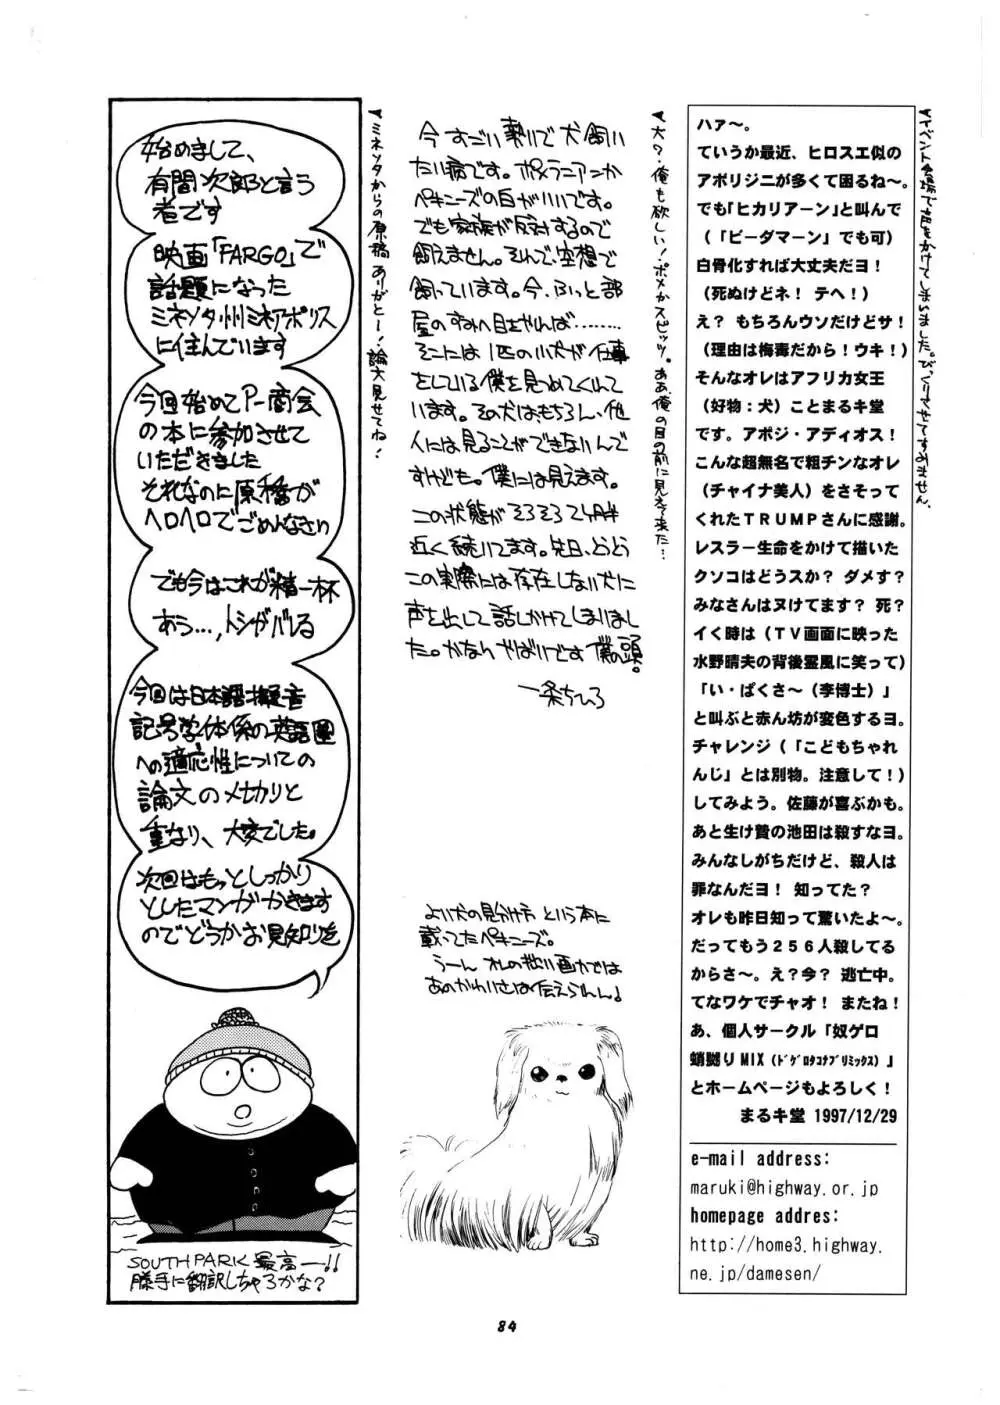 ▼イベント会場で声をかけてしまいました。びっくりさせてすみません。
ハァ～。
ていうか最近、ヒロスエ似の
アボリジニが多くて困るね～。
でも「ヒカリアーン」と叫んで
（「ビーダマーン」でも可）
白骨化すれば大丈夫だヨ！
（死ぬけどネ！ テヘ！）
え？ もちろんウソだけどサ！
（理由は梅毒だから！ウキ！）
そんなオレはアフリカ女王
（好物：犬）ことまるキ堂
です。アポジ・アディオス！
こんな超無名で粗チンなオレ
（チャイナ美人）をさそって
くれたＴＲＵＭＰさんに感謝。
レスラー生命をかけて描いた
クソコはどうスか？ ダメす？
みなさんはヌけてます？ 死？
イく時は（ＴＶ画面に映った
水野晴夫の背後霊風に笑って）
「い・ぱくさ～（李博士）」
と叫ぶと赤ん坊が変色するヨ。
チャレンジ（「こどもちゃれ
んじ」とは別物。注意して！）
してみよう。佐藤が喜ぶかも。
あと生け贄の池田は殺すなヨ。
みんなしがちだけど、殺人は
罪なんだヨ！ 知ってた？
オレも昨日知って驚いたよ～。
だってもう２５６人殺してる
からさ～。え？今？ 逃亡中。
てなワケでチャオ！ またね！
あ、個人サークル「奴ゲロ
蛸嬲りMIX（ﾄﾞｹﾞﾛﾀｺﾅﾌﾞﾘﾐｯｸｽ）」
とホームページもよろしく！
まるキ堂 1997/12/29
e-mail address:
maruki@highway.or.jp
homepage addres:
http://home3.highway.
ne.jp/damesen/
▼犬？・俺も欲しい！ポメかスピッツ。ああ、俺の目の前に見えて来た…
今すごい勢いで犬飼い
たい病です。ポメラニアンか
ペキニーズの白がいいです。
でも家族が反対するので
飼えません。そんで、空想で
飼っています。今、ふっと部
屋のすみへ目をやれば………
そこには1匹の小犬が仕事
をしている僕を見つめてくれて
います。その犬は、もちろん、他
人には見ることができないんで
すけども。僕には見えます。
この状態がそろそろ2ヶ月半
近く続いてます。先日、とうとう
この実際には存在しない犬に
声を出して話しかけてしまいまし
た。かなりやばいです 僕の頭。
一条ちひろ
よい犬の見分け方 という本に
載ってたペキニーズ。
うーん オレの拙い画力では
あのかわいさは伝えられん♪
▼ミネソタからの原稿 ありがとー！論文見せてね！
始めまして、
有間次郎と言う
者です
映画「FARGO」で
話題になった
ミネソタ州ミネアポリス
に住んでいます
今回始めてアー商会
の本に参加させて
いただきました
それなのに原稿が
ヘロヘロでごめんなさい
でも今はこれが精一杯
あう…,トシがバレる
今回は日本語擬音
記号学体係の英語圏
への適応性についての
論文の〆切りと
重なり、大変でした。
次回はもっとしっかり
としたマンガかきます
のでどうかお見知りを
SOUTH PARK 最高ー!!
勝手に翻訳しちゃろかな？
84